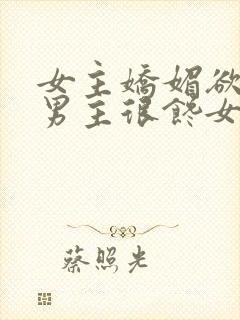 女主嬌媚欲
男主很饞女
蔡照光